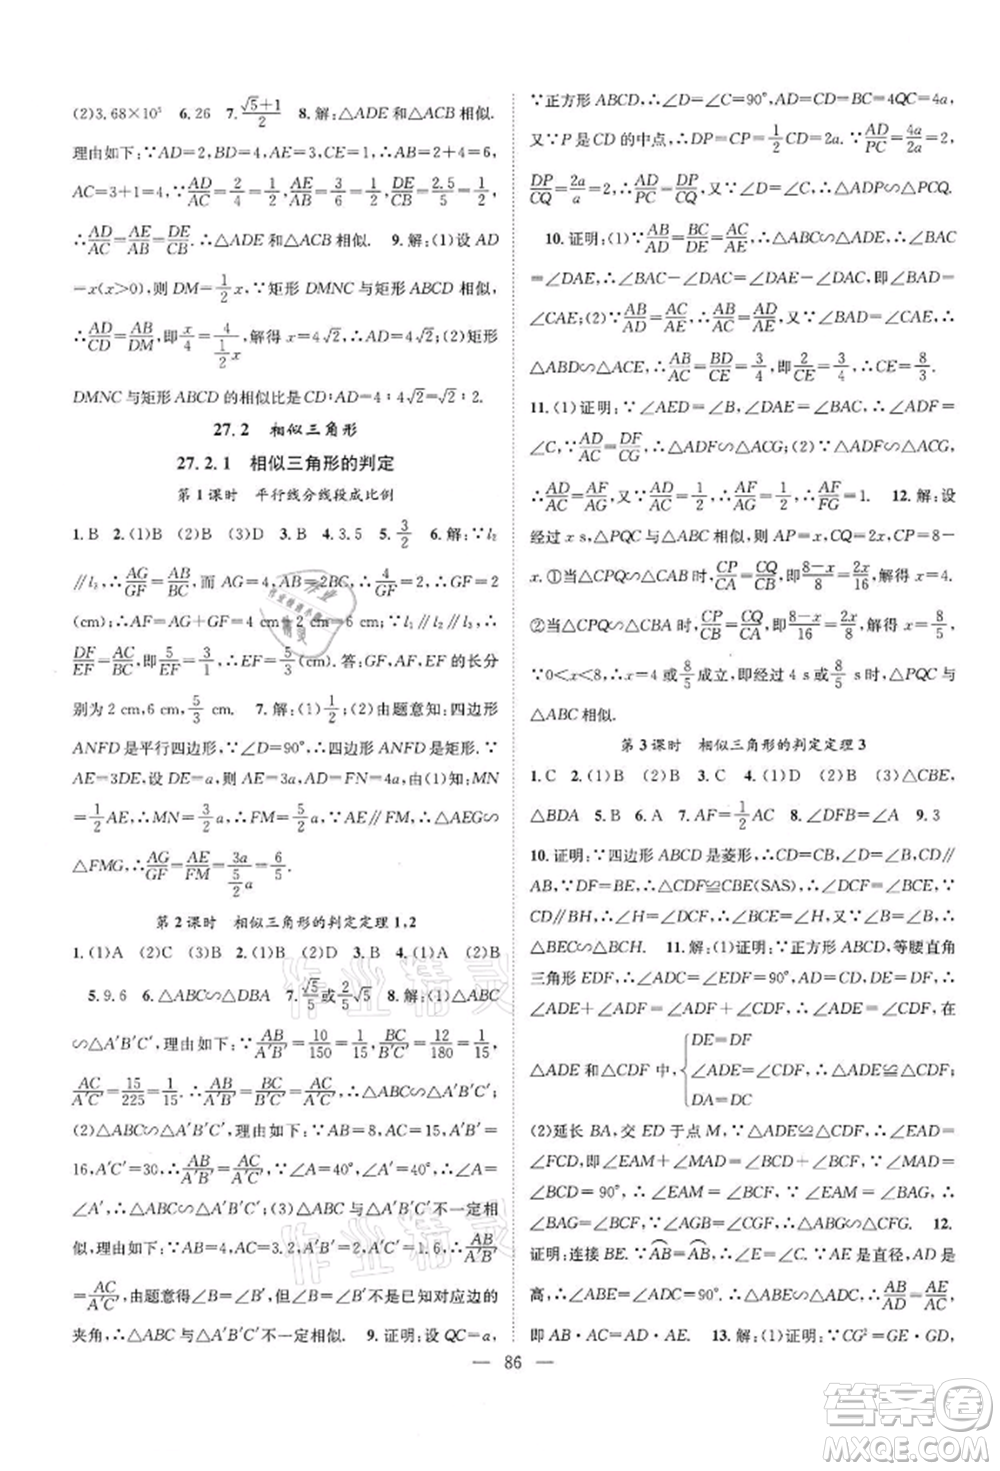 (2)3.68×10⁵ 6.26 7.(√5+1)/2 8.解:△ADE和△ACB相似.
理由如下:∵AD=2,BD=4,AE=3,CE=1,∴AB=2+4=6,
AC=3+1=4,∵AD/AC=2/4=1/2,AE/AB=3/6=1/2,DE/CB=2.5/5=1/2,
∴AD/AC=AE/AB=DE/CB.∴△ADE和△ACB相似. 9.解:(1)设AD
=x(x>0),则DM=1/2x,∵矩形DMNC与矩形ABCD相似,
∴AD/CD=AB/DM,即x/4=4/(1/2x),解得x=4√2;(2)矩形
DMNC与矩形ABCD的相似比是CD:AD=4:4√2=√2/2.
27.2 相似三角形
27.2.1 相似三角形的判定
第1课时 平行线分线段成比例
1.B 2.(1)B (2)B (3)D 3.B 4.3.5 5.3/2 6.解:∵l₂
∥l₃,∴AG/GF=AB/BC,而AG=4,AB=2BC,∴4/GF=2,∴GF=2
(cm).∴AF=AG+GF=4 cm+2 cm=6 cm.∵l₁∥l₂,∴
DF/EF=AC/BC,即5/EF=3,∴EF=5/3(cm).答:GF,AF,EF的长分
别为2 cm,6 cm,5/3 cm. 7.解:(1)由题意知:四边形
ANFD是平行四边形,∵∠D=90°,∴四边形ANFD是矩形.∵
AE=3DE,设DE=a,则AE=3a,∴AD=FN=4a;(2)∵AM=
1/2AE,∴MN=3/2a,∴FM=5/2a,∵AE∥FM,∴△AEG∽
△FMG,∴AG/GF=AE/FM=3a/(5/2a)=6/5.
第2课时 相似三角形的判定定理1,2
1.(1)A (2)C (3)B 2.(1)B (2)D 3.B 4.(1)C (2)B
5.9.6 6.△ABC∽△DBA 7.√5/5或2/5√5 8.解:(1)△ABC
∽△A′B′C′,理由如下:∵AB/A′B′=10/150=1/15,BC/B′C′=12/180=1/15,
AC/A′C′=15/225=1/15,∴AB/A′B′=BC/B′C′=AC/A′C′,∴△ABC∽△A′B′C′;
(2)△ABC∽△A′B′C′,理由如下:∵AB=8,AC=15,A′B′=
16,A′C′=30,∴AB/A′B′=AC/A′C′=1/2,∵∠A=40°,∠A′=40°,∴∠A=
∠A′,∴△ABC∽△A′B′C′;(3)△ABC与△A′B′C′不一定相
似.理由如下:∵AB=2,AC=4,A′B′=3.2,A′C′=1.6,∴AB/A′B′=
AC/A′C′,由题意得∠B=∠B′,但∠B、∠B′不是已知对应边的
夹角,∴△ABC与△A′B′C′不一定相似. 9.证明:设QC=a,
∵正方形ABCD,∴∠D=∠C=90°,AD=BC=4QC=4a,
又∵P是CD的中点,∴DP=CP=1/2CD=2a.∵AD/PC=4a/2a=2,
DP/CQ=2a/a=2,∴AD/PC=DP/CQ,又∵∠D=∠C,∴△ADP∽△PCQ.
10.证明:(1)∵AB/AD=BC/DE=AC/AE,∴△ABC∽△ADE,∴∠BAC
=∠DAE,∴∠BAC-∠DAC=∠DAE-∠DAC,即∠BAD=
∠CAE;(2)∵AB/AD=AC/AE,∴AB/AC=AD/AE,又∵∠BAD=∠CAE,∴
△ABD∽△ACE,∴AB/AC=BD/CE,即6/4=... 2/CE,∴CE=8/3.
11.(1)证明:∵∠AED=∠B,∠DAE=∠BAC,∴∠ADF=
∠C,又∵AD/AC=DF/CG,∴△ADF∽△ACG;(2)∵△ADF∽△ACG,
∴AD/AC=AF/AG,又∵AD/AC=1/2,∴AF/AG=1/2,∴AF/FG=1. 12.解:设
经过x s,△PQC与△ABC相似,则AP=x,CQ=2x,CP=8-
x.①当△CPQ∽△CAB时,CP/CA=CQ/CB,即(8-x)/8=2x/16,解得x=4;
②当△CPQ∽△CBA时,CP/CB=CQ/CA,即(8-x)/16=2x/8,解得x=8/5.
∵0<x<8,∴x=4或8/5成立,即经过4 s或8/5 s时,△PQC与
△ABC相似.
第3课时 相似三角形的判定定理3
1.C 2.B 3.C 4.(1)C (2)B (3)△CBE,
△BDA 5.B 6.A 7.AF=1/2AC 8.∠DFB=∠A 9.3
10.证明:∵四边形ABCD是菱形,∴∠D=∠B,CD=CB.
又∵DF=BE,∴△CDF≌△CBE(SAS),∴∠DCF=∠BCE.∵
CD∥BH,∴∠H=∠DCF,∴∠BCE=∠H.又∵∠B=∠B,
∴△BEC∽△BCH. 11.解:(1)证明:∵正方形ABCD,等腰直角
三角形EDF,∴∠ADC=∠EDF=90°,AD=CD,DE=DF,
∴∠ADE+∠ADF=∠ADF+∠CDF,∴∠ADE=∠CDF,在
△ADE和△CDF中,{DE=DF
∠ADE=∠CDF,∴△ADE≌△CDF;
DA=DC
(2)延长BA,交ED于点M,∵△ADE≌△CDF,∴∠EAD=
∠FCD,即∠EAM+∠MAD=∠BCD+∠BCF,∵∠MAD=
∠BCD=90°,∴∠EAM=∠BCF,∵∠EAM=∠BAG,∴
∠BAG=∠BCF,∵∠AGB=∠CGF,∴△ABG∽△CFG. 12.
证明:连接BE.∵AB=AB,∴∠E=∠C.∵AE是直径,AD是
高,∴∠ABE=∠ADC=90°.∴△ABE∽△ADC.∴AB/AD=AE/AC,
即AB·AC=AD·AE. 13.解:(1)证明:∵CG²=GE·GD,
— 86 —
作业精灵
作业精灵
作业
精灵
答案卷
MXQE.COM